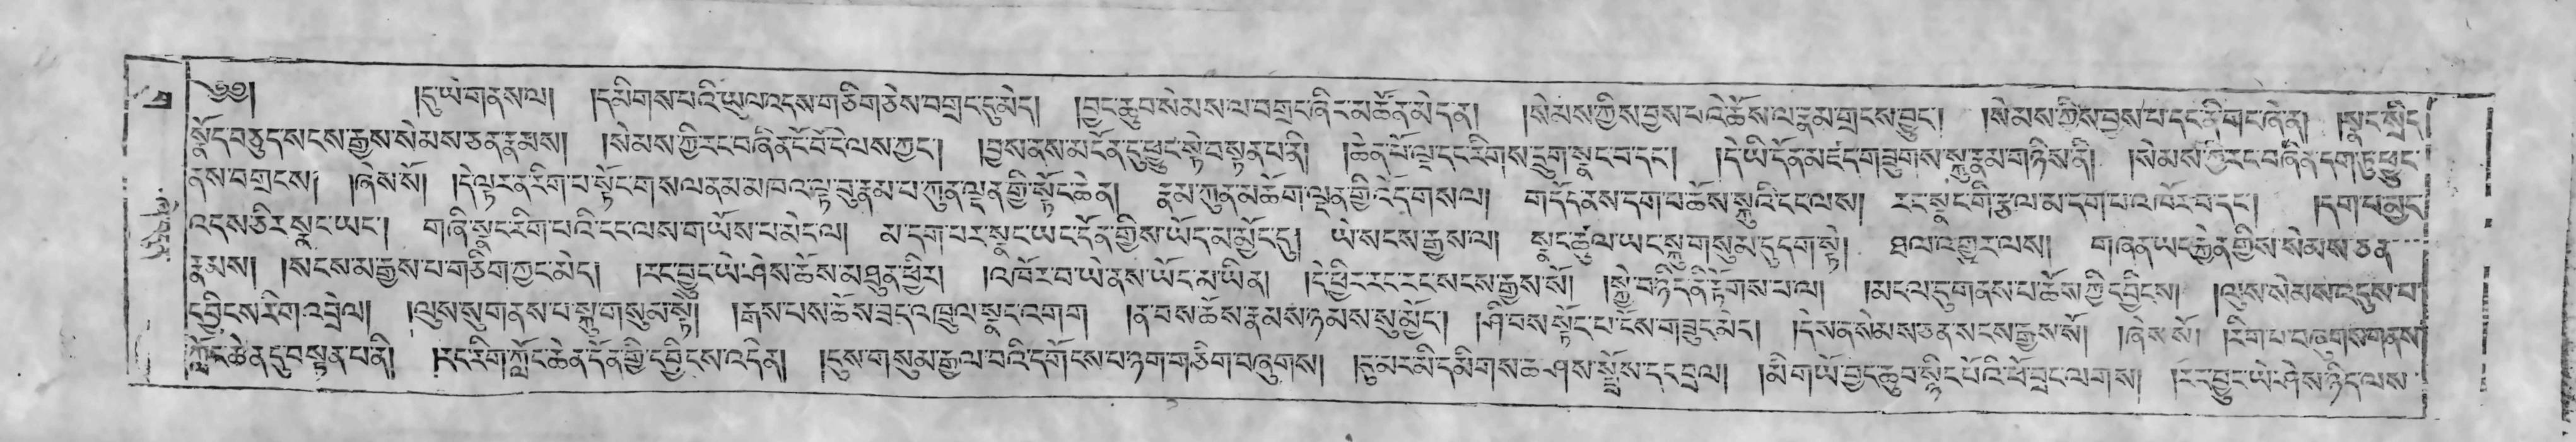 ༄༅། །དུ་ཡེ་གནས་ལ། །དམིགས་པའི་ཡུལ་འདས་གཅིག་ཅེས་བགྲང་དུ་མེད། །བྱང་ཆུབ་སེམས་ལ་བགྲང་ཞིང་མཚོན་མེད་ན། །སེམས་ཀྱིས་བྱས་པའི་ཆོས་ལ་རྣམ་གྲངས་བྱུང་། །སེམས་ཀྱིས་བྱས་པ་དང་ནི་གང་ཞེ་ན། །སྣང་སྲིད་
སྣོད་བཅུད་སངས་རྒྱས་སེམས་ཅན་རྣམས། །སེམས་ཀྱི་རང་བཞིན་ངོ་བོ་ངེལས་ཀྱང་། །བྱས་ནས་མངོན་དུ་ཕྱུང་སྟེ་བསྟན་པ་ནི། །ཆེན་པོ་ལྔ་དང་རིགས་དྲུག་སྣང་བ་དང་། །དེ་ཡི་དོན་མཛད་གཟུགས་སྐུ་རྣམ་གཉིས་ནི། །སེམས་ཀྱི་རང་བཞིན་དག་ཏུ་ཕྱུང་
ནས་བགྲངས། །ཞེས་སོ། །དེ་ལྟར་ན་རིག་པ་སྟོང་གསལ་ནམ་མཁའ་ལྟ་བུ་རྣམ་པ་ཀུན་ལྡན་གྱི་སྟོང་ཆེན། རྣམ་ཀུན་མཆོག་ལྡན་གྱི་འོད་གསལ། གདོད་ནས་དག་པ་ཆོས་སྐུའི་ངང་ལས། རང་སྣང་གི་རྩལ་མ་དག་པ་འཁོར་བ་དང་། །དག་པ་མྱང་
འདས་ཅིར་སྣང་ཡང་། གཞི་སྣང་རིག་པའི་ངང་ལས་གཡོས་པ་མེད་ལ། མ་དག་པར་སྣང་ཡང་དོན་གྱིས་ཡོད་མ་མྱོང་དུ། ཡེ་སངས་རྒྱས་ལ། སྣང་ཚུལ་ཡང་སྐུ་གསུམ་དུ་དག་སྟེ། ཐལ་འགྱུར་ལས། གཞན་ཡང་རྐྱེན་གྱིས་སེམས་ཅན་
རྣམས། །སངས་མ་རྒྱས་པ་གཅིག་ཀྱང་མེད། །རང་བྱུང་ཡེ་ཤེས་ཆོས་མཐུན་ཕྱིར། །འཁོར་བ་ཡེ་ནས་ཡོད་མ་ཡིན། །དེ་ཕྱིར་རང་རང་སངས་རྒྱས་སོ། །སྐྱེ་བ་ཉིད་ནི་རྟོགས་པ་ལ། །མངལ་དུ་གནས་པ་ཆོས་ཀྱི་དབྱིངས། །ལུས་སེམས་འདུས་པ་
དབྱིངས་རིག་འབྲེལ། །ལུས་སུ་གནས་པ་སྐུ་གསུམ་སྟེ། །རྒས་པས་ཆོས་ཟད་འཁྲུལ་སྣང་འགག །ན་བས་ཆོས་རྣམས་ཉམས་སུ་མྱོང་། །ཤི་བས་སྟོང་པ་ངོས་གཟུང་མེད། །དེས་ན་སེམས་ཅན་སངས་རྒྱས་སོ། །ཞེས་སོ། །རིག་པ་བཞུགས་གནས་
ཀློང་ཆེན་དུ་བསྟན་པ་ནི། །རང་རིག་ཀློང་ཆེན་དོན་གྱི་དབྱིངས་འདི་ན། །དུས་གསུམ་རྒྱལ་བའི་དགོངས་པ་ཉག་གཅིག་བཞུགས། །དུ་མར་མི་དམིགས་ཆ་ཤས་སྤྲོས་དང་བྲལ། །མི་གཡོ་བྱང་ཆུབ་སྙིང་པོའི་ཕོ་བྲང་ལགས། །རང་བྱུང་ཡེ་ཤེས་ཉིད་ལས་